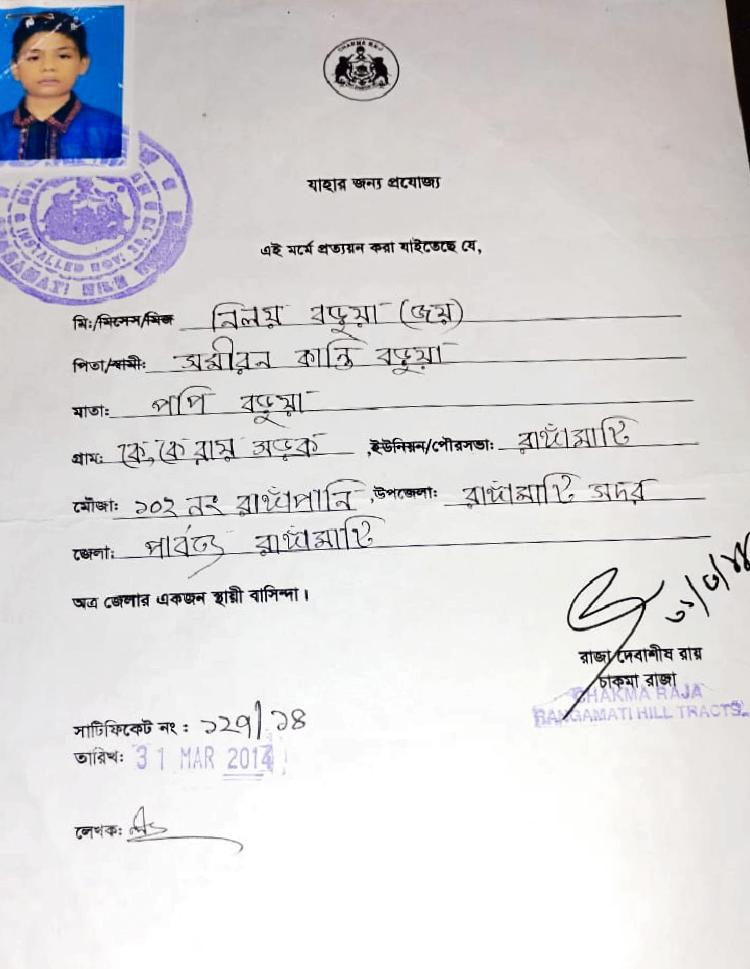 CHAKMA RAJ
যাহার জন্য প্রযোজ্য
এই মর্মে প্রত্যয়ন করা যাইতেছে যে,
মি:/মিসেস/মিস নিলয় বড়ুয়া (জয়)
পিতা/স্বামী: সমীরন কান্তি বড়ুয়া
মাতা: পপি বড়ুয়া
গ্রাম: কে, কে রায় সড়ক ,ইউনিয়ন/পৌরসভা: রাঙ্গাঁমাটি
মৌজা: ১০২ নং রাঙ্গাঁপানি ,উপজেলা: রাঙ্গাঁমাটি সদর
জেলা: পার্বত্য রাঙ্গাঁমাটি
অত্র জেলার একজন স্থায়ী বাসিন্দা।
৩১/৩/১৪
রাজা দেবাশীষ রায়
চাকমা রাজা
CHAKMA RAJA
RANGAMATI HILL TRACTS.
সার্টিফিকেট নং : ১২৭/১৪
তারিখ: 31 MAR 2014
লেখক: